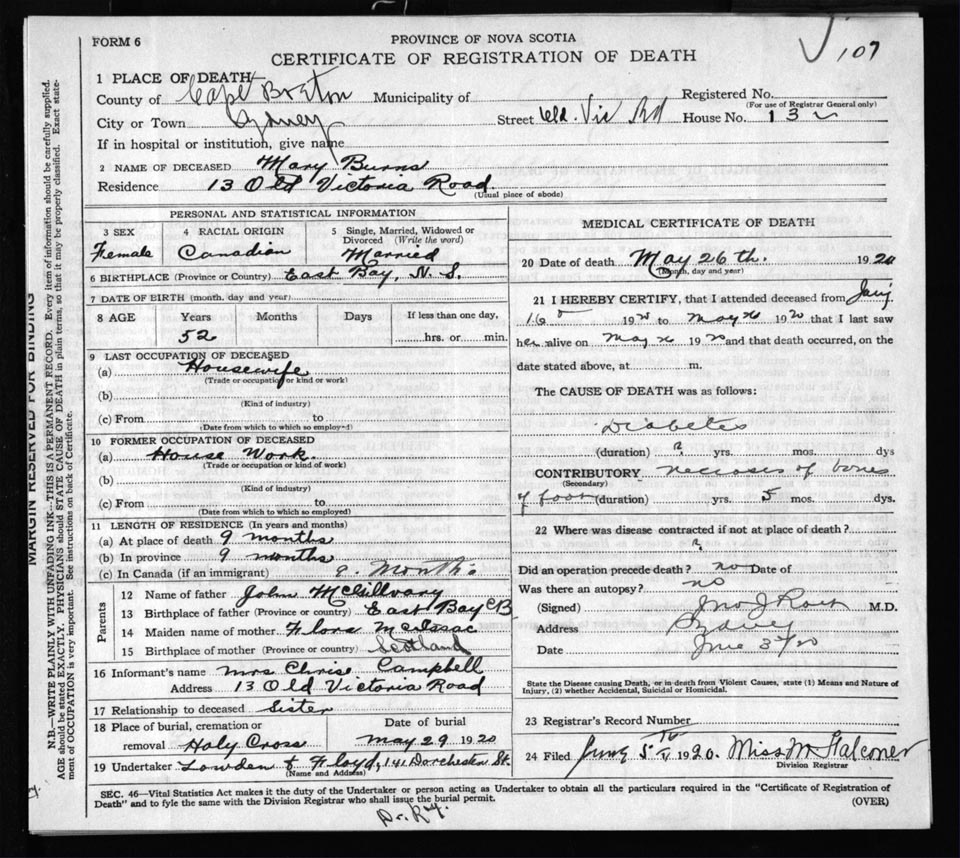 107
FORM 6
PROVINCE OF NOVA SCOTIA
CERTIFICATE OF REGISTRATION OF DEATH
1 PLACE OF DEATH
County of Cape Breton Municipality of Registered No.
(For use of Registrar General only)
City or Town Sydney Street Old. Vic Rd House No. 13
If in hospital or institution, give name
2 NAME OF DECEASED Mary Burns
Residence 13 Old Victoria Road.
(Usual place of abode)
PERSONAL AND STATISTICAL INFORMATION
3 SEX 4 RACIAL ORIGIN 5 Single, Married, Widowed or Divorced (Write the word)
Female Canadian Married
6 BIRTHPLACE (Province or Country) East Bay, N. S.
7 DATE OF BIRTH (month, day and year)
8 AGE Years Months Days If less than one day,
52 hrs. or min.
9 LAST OCCUPATION OF DECEASED
(a) Housewife
(Trade or occupation or kind or work)
(b)
(Kind of industry)
(c) From to
(Date from which to which so employed)
10 FORMER OCCUPATION OF DECEASED
(a) House Work.
(Trade or occupation or kind of work)
(b)
(Kind of industry)
(c) From to
(Date from which to which so employed)
11 LENGTH OF RESIDENCE (In years and months)
(a) At place of death 9 months
(b) In province 9 months
(c) In Canada (if an immigrant) 9. Months
Parents
12 Name of father John McGillvary
13 Birthplace of father (Province or country) East Bay CB
14 Maiden name of mother Flora McIssac
15 Birthplace of mother (Province or country) Scotland
16 Informant's name Mrs Chrise Campbell
Address 13 Old Victoria Road
17 Relationship to deceased Sister
18 Place of burial, cremation or removal Holy Cross Date of burial May 29 1920
19 Undertaker Lowden & Floyd, 141 Dorchester St.
(Name and Address)
MEDICAL CERTIFICATE OF DEATH
20 Date of death May 26th. 1920
(Month, day and year)
21 I HEREBY CERTIFY, that I attended deceased from
16 192 to May 26 1920 that I last saw
her alive on May 26 1920 and that death occurred, on the
date stated above, at m.
The CAUSE OF DEATH was as follows:
Diabetes
(duration) ? yrs. mos. dys
CONTRIBUTORY necroses of bones
(Secondary)
of foot (duration) yrs. 5 mos. dys.
22 Where was disease contracted if not at place of death?
?
Did an operation precede death? no Date of
Was there an autopsy? no
(Signed) M.D.
Address Sydney
Date June 3/20
State the Disease causing Death, or in death from Violent Causes, state (1) Means and Nature of Injury, (2) whether Accidental, Suicidal or Homicidal.
23 Registrar's Record Number
24 Filed June 5 1920. Miss M Falconer
Division Registrar
SEC. 46—Vital Statistics Act makes it the duty of the Undertaker or person acting as Undertaker to obtain all the particulars required in the "Certificate of Registration of
Death" and to fyle the same with the Division Registrar who shall issue the burial permit. (OVER)
MARGIN RESERVED FOR BINDING
N.B.—WRITE PLAINLY WITH UNFADING INK—THIS IS A PERMANENT RECORD. Every item of information should be carefully supplied.
AGE should be stated EXACTLY. PHYSICIANS should STATE CAUSE OF DEATH in plain terms, so that it may be properly classified. Exact state-
ment of OCCUPATION is very important. See instructions on back of Certificate.